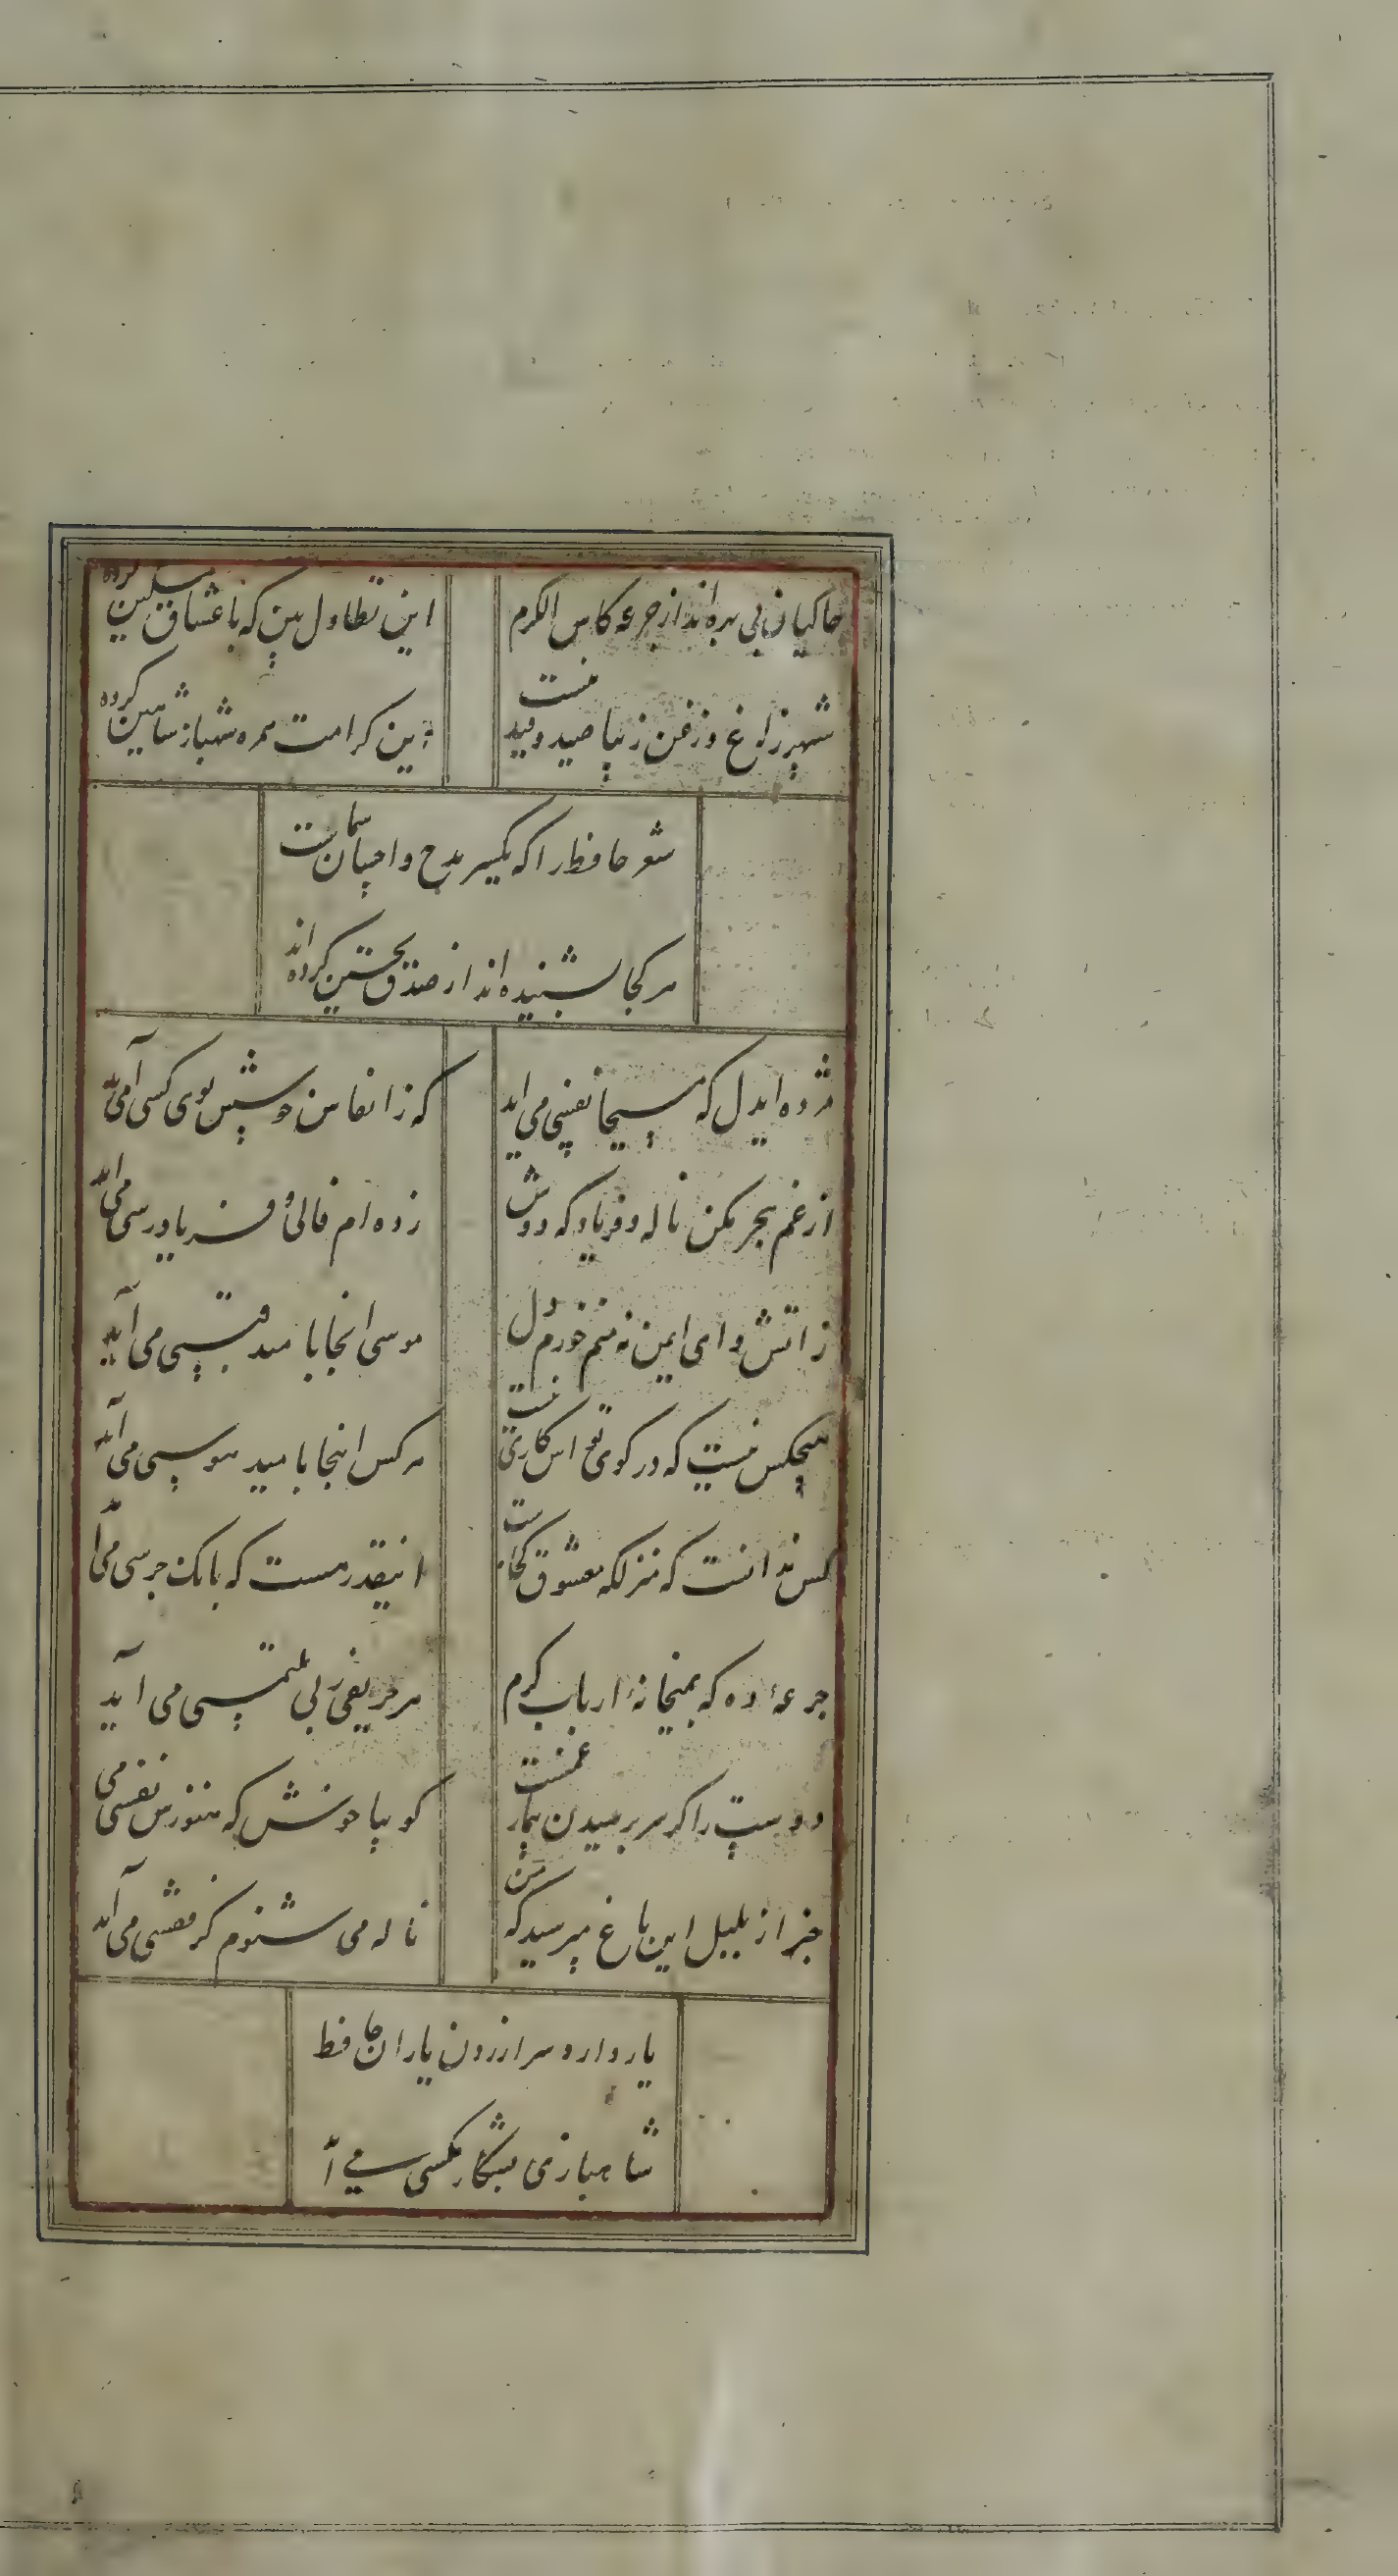 خاکیان بی بهره‌اند از جرعه کاس الکرم
این تطاول بین که با عشاق مسکین کرده
شهپر زاغ و زغن زیبا صید و قید نیست
این کرامت همره شهباز شاهین کرده
شعر حافظ را که یکسر مدح و احسان شماست
هر کجا بشنیده‌اند از صدق تحسین کرده‌اند
مژده ایدل که مسیحا نفسی می آید
که ز انفاس خوشش بوی کسی می آید
از غم هجر مکن ناله و فریاد که دوش
زده ام فالی و فریاد رسی می آید
ز اتش وادی ایمن نه منم خورم دل
موسی انجا بامید قبسی می آید
هیچکس نیست که در کوی تواش کاری نیست
هر کس اینجا بامید هوسی می آید
کس ندانست که منزلگه معشوق کجاست
اینقدر هست که بانک جرسی می آ
جرعهٔ ده که بمیخانهٔ ارباب کرم
هر حریفی ز پی ملتمسی می آید
دوست را کر سر پرسیدن بیمار غمست
کو بیا خوش که هنوزش نفسی می
خبر از بلبل این باغ مپرسید که من
ناله می شنوم کز قفسی می آید
یار دارد سر ازردن یاران حافظ
شاهبازی بشکار مکسی می آ